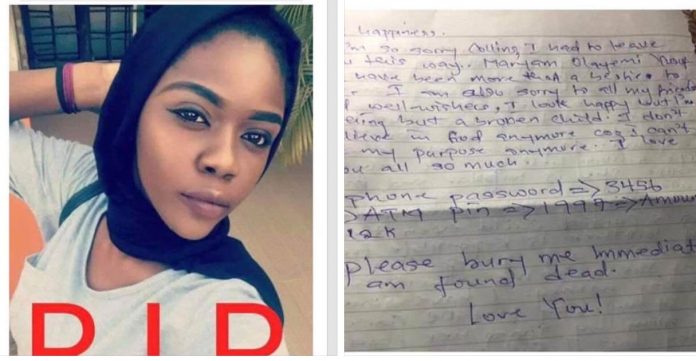 R.I.P
happiness.
I'm so sorry Colling, I had to leave
u this way. Maryam Olayemi you
have been more than a bestie to
I am also sorry to all my friends
well-wishers, I look happy but I'm
being but a broken child. I don't
believe in God anymore coz i can't
my purpose anymore. I love
you all so much.
phone password => 3456
ATM pin => 1997 => Amoun
12k
please bury me immediat
am found dead.
Love You!